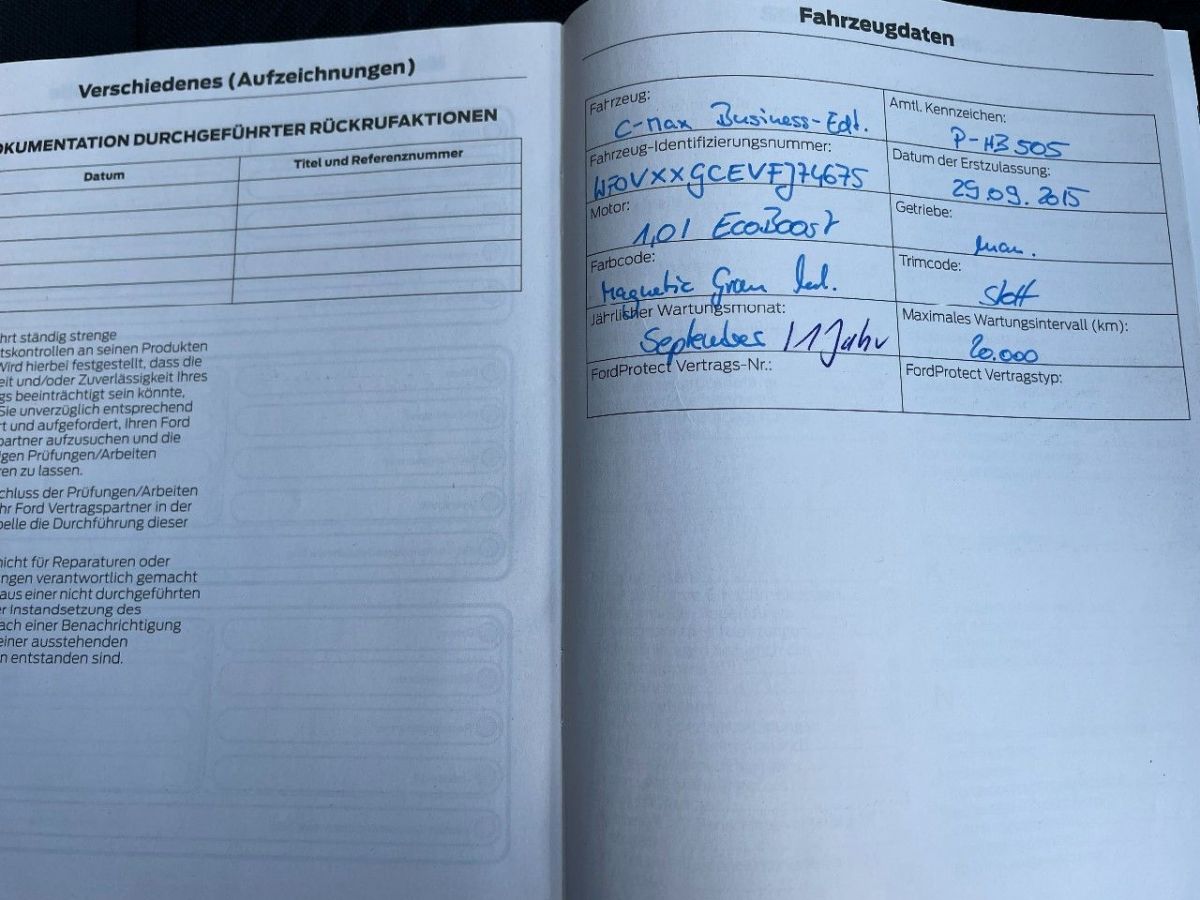 Verschiedenes (Aufzeichnungen)
OKUMENTATION DURCHGEFÜHRTER RÜCKRUFAKTIONEN
Datum
Titel und Referenznummer
hrt ständig strenge
tskontrollen an seinen Produkten
Wird hierbei festgestellt, dass die
eit und/oder Zuverlässigkeit Ihres
gs beeinträchtigt sein könnte,
Sie unverzüglich entsprechend
rt und aufgefordert, Ihren Ford
partner aufzusuchen und die
igen Prüfungen/Arbeiten
en zu lassen.
chluss der Prüfungen/Arbeiten
hr Ford Vertragspartner in der
belle die Durchführung dieser
nicht für Reparaturen oder
ngen verantwortlich gemacht
aus einer nicht durchgeführten
er Instandsetzung des
ach einer Benachrichtigung
einer ausstehenden
n entstanden sind.
Fahrzeugdaten
Fahrzeug:
C-Max Business-Edt.
Amtl. Kennzeichen:
P-HB 505
Fahrzeug-Identifizierungsnummer:
WF0VXXGCEVFJ74675
Datum der Erstzulassung:
29.09.2015
Motor:
1,0l EcoBoost
Getriebe:
man.
Farbcode:
Magnetic Grau
Trimcode:
Stoff
Jährlicher Wartungsmonat:
September / 1 Jahr
Maximales Wartungsintervall (km):
20.000
FordProtect Vertrags-Nr.:
FordProtect Vertragstyp: